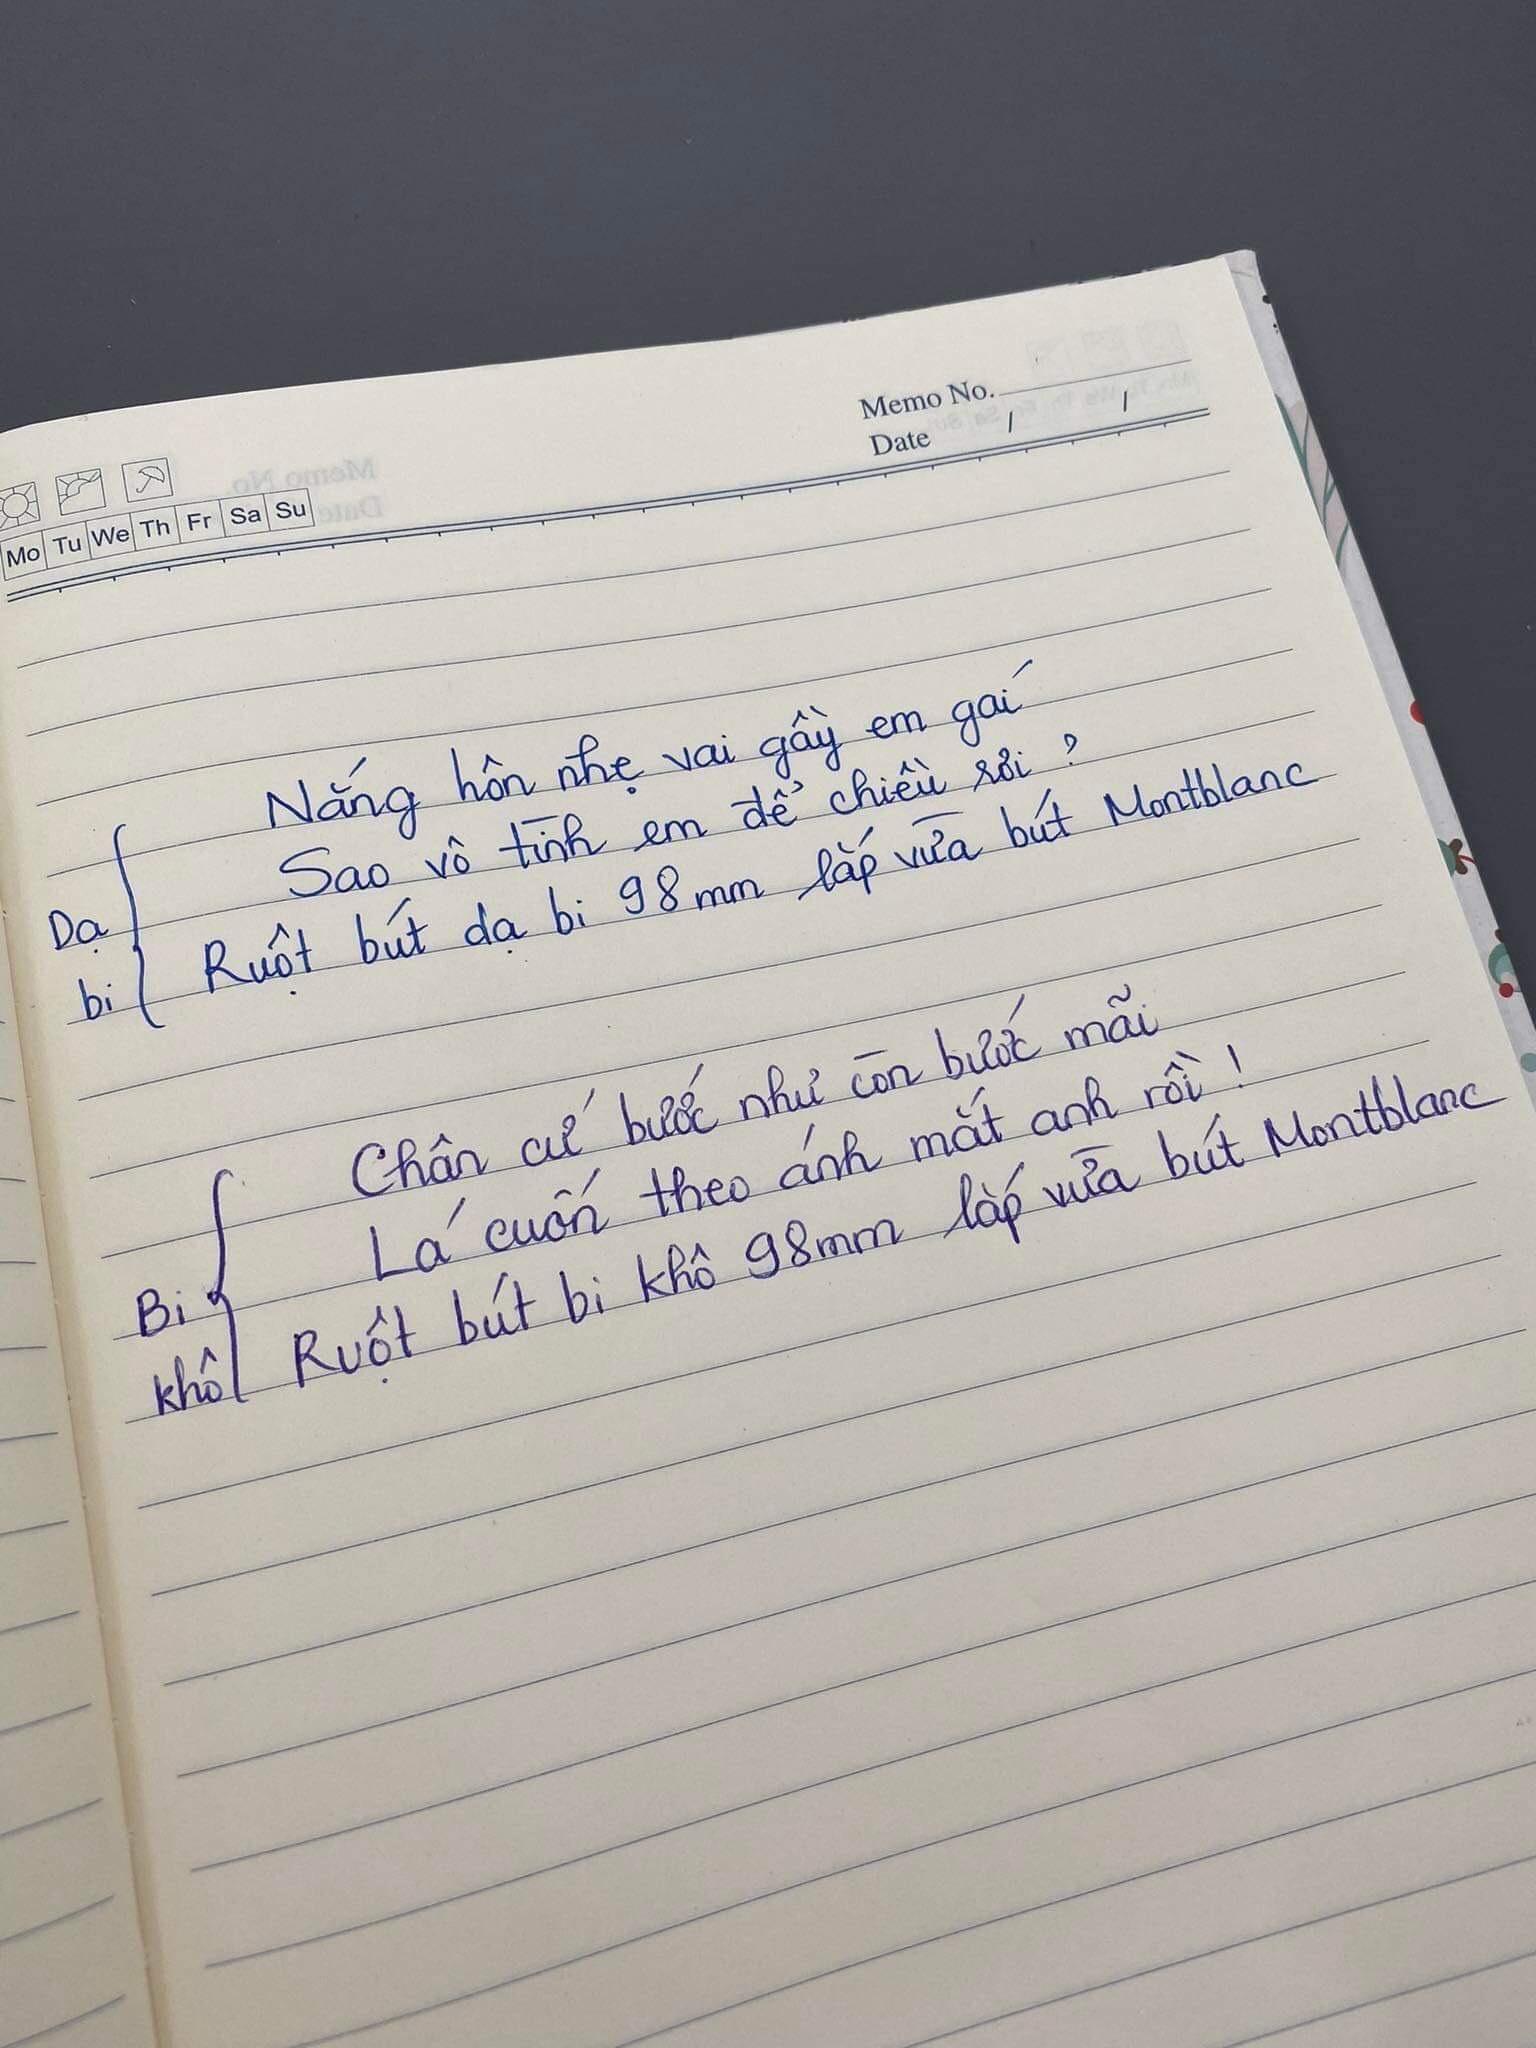 Memo No.
Date / /
Mo Tu We Th Fr Sa Su
Nắng hôn nhẹ vai gầy em gái
Sao vô tình em để chiều rơi?
Dạ bi
Ruột bút dạ bi 98mm lắp vừa bút Montblanc
Chân cứ bước như còn bước mãi
Lá cuốn theo ánh mắt anh rồi!
Bi khô
Ruột bút bi khô 98mm lắp vừa bút Montblanc